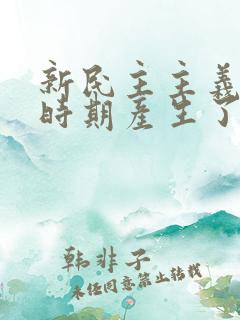 新民主主義
時期產生了
韩非子
未经同意禁止转载